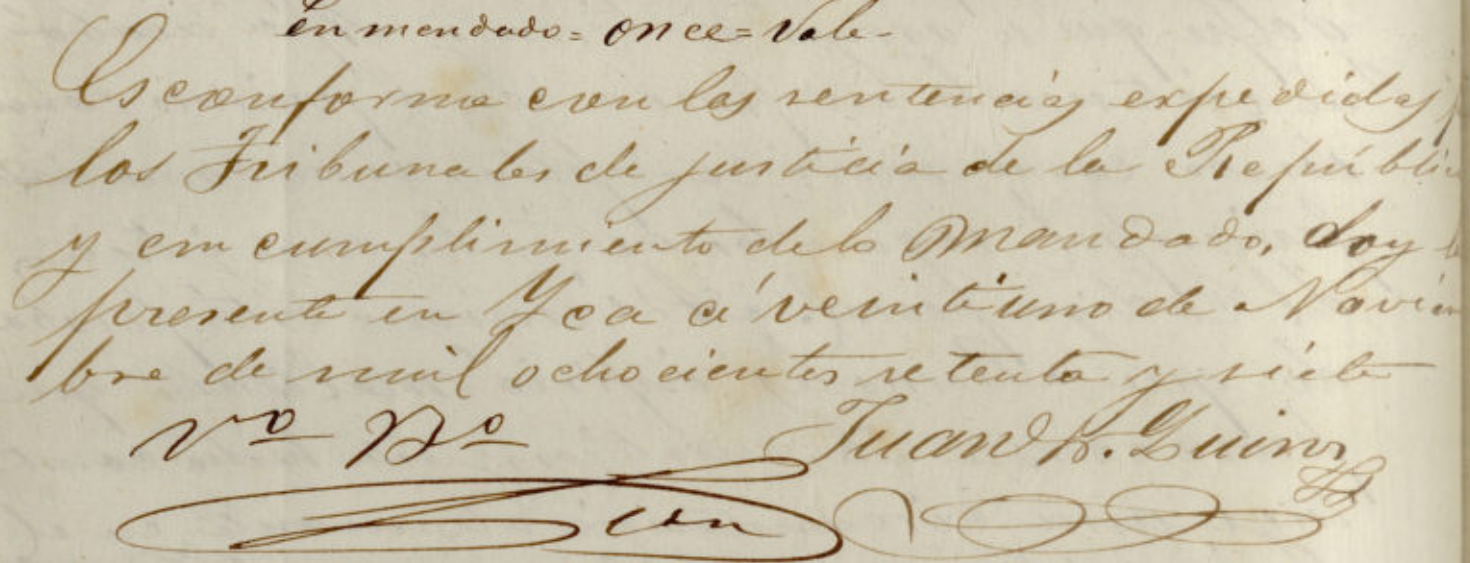 Enmendado = once = Vale -
Es conforme con las sentencias expedidas
los Tribunales de justicia de la Repúblic
y en cumplimiento de lo Mandado, doy
presente en Yca á veintiuno de Noviem
bre de mil ochocientos setenta y siete
Vº Bº Juan